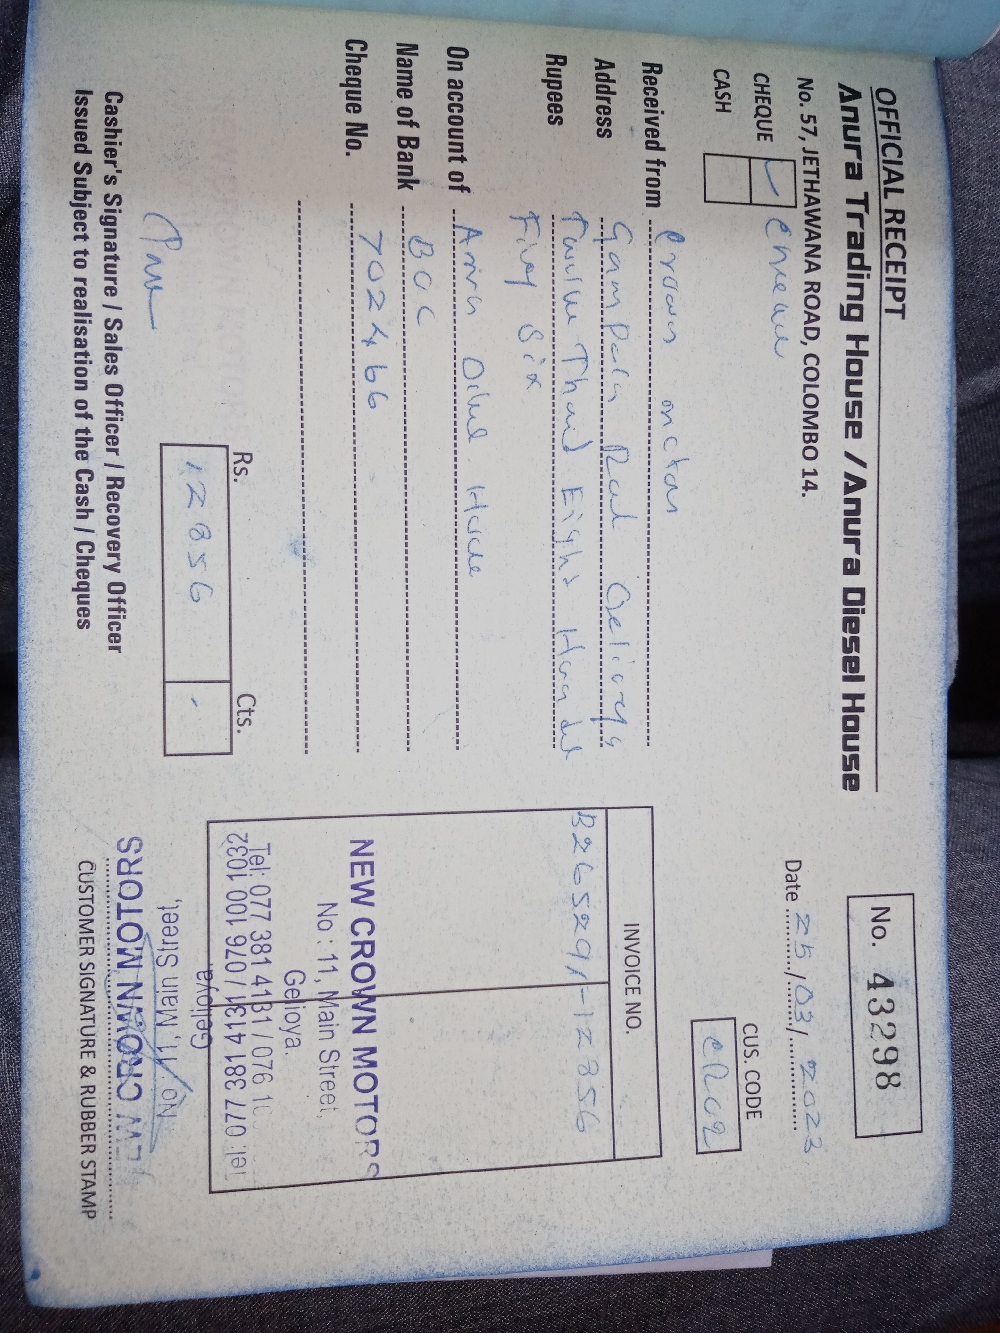 OFFICIAL RECEIPT
Anura Trading House / Anura Diesel House
No. 57, JETHAWANA ROAD, COLOMBO 14.
No. 43298
Date 25/03/2023
CHEQUE ✓ cheque
CASH
CUS. CODE
CR09
Received from crown
Address Road Gelioya
Rupees Twelve Thousand Eight Hundred
Fifty Six
On account of Anura Diesel House
Name of Bank BOC
Cheque No. 702466
INVOICE NO.
B265291-12856
Rs. Cts.
12856 -
NEW CROWN MOTORS
No : 11, Main Street,
Gelioya.
Tel: 077 381 4131 / 076 10
Tel: 077 381 4131 / 076 100 1032
Gelioya.
No: 11, Main Street,
NEW CROWN MOTORS
Cashier's Signature / Sales Officer / Recovery Officer
Issued Subject to realisation of the Cash / Cheques
CUSTOMER SIGNATURE & RUBBER STAMP